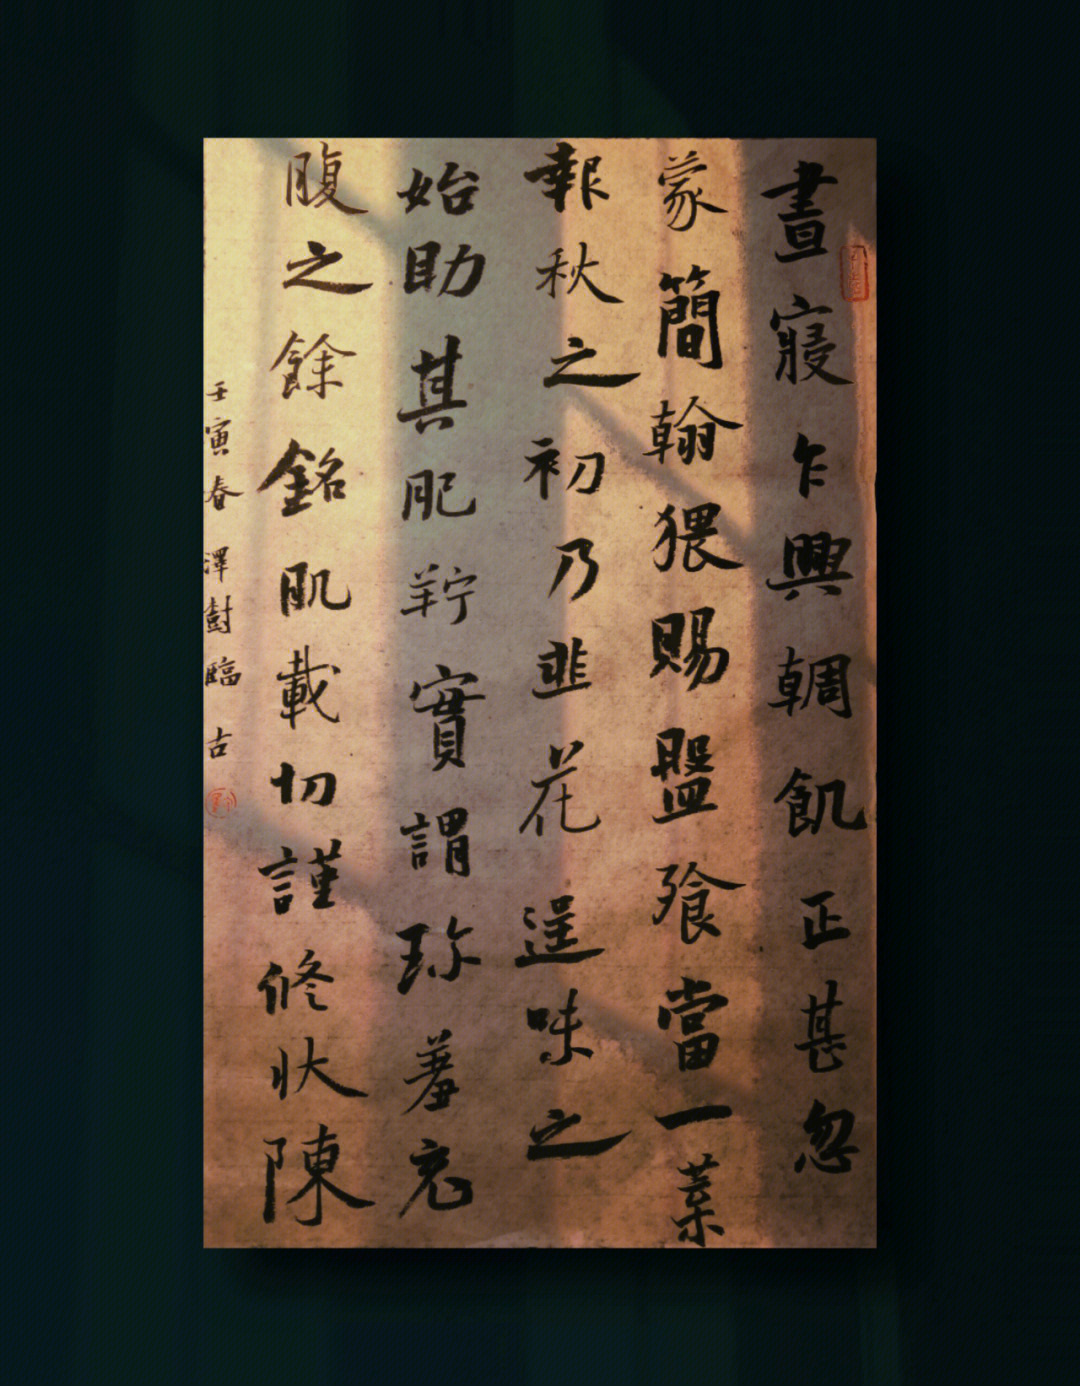 晝寢乍興輖飢正甚忽
蒙簡翰猥賜盤飱當一葉
報秋之初乃韭花逞味之
始助其肥羜實謂珎羞充
腹之餘銘肌載切謹修狀陳
壬寅春澤樹臨古